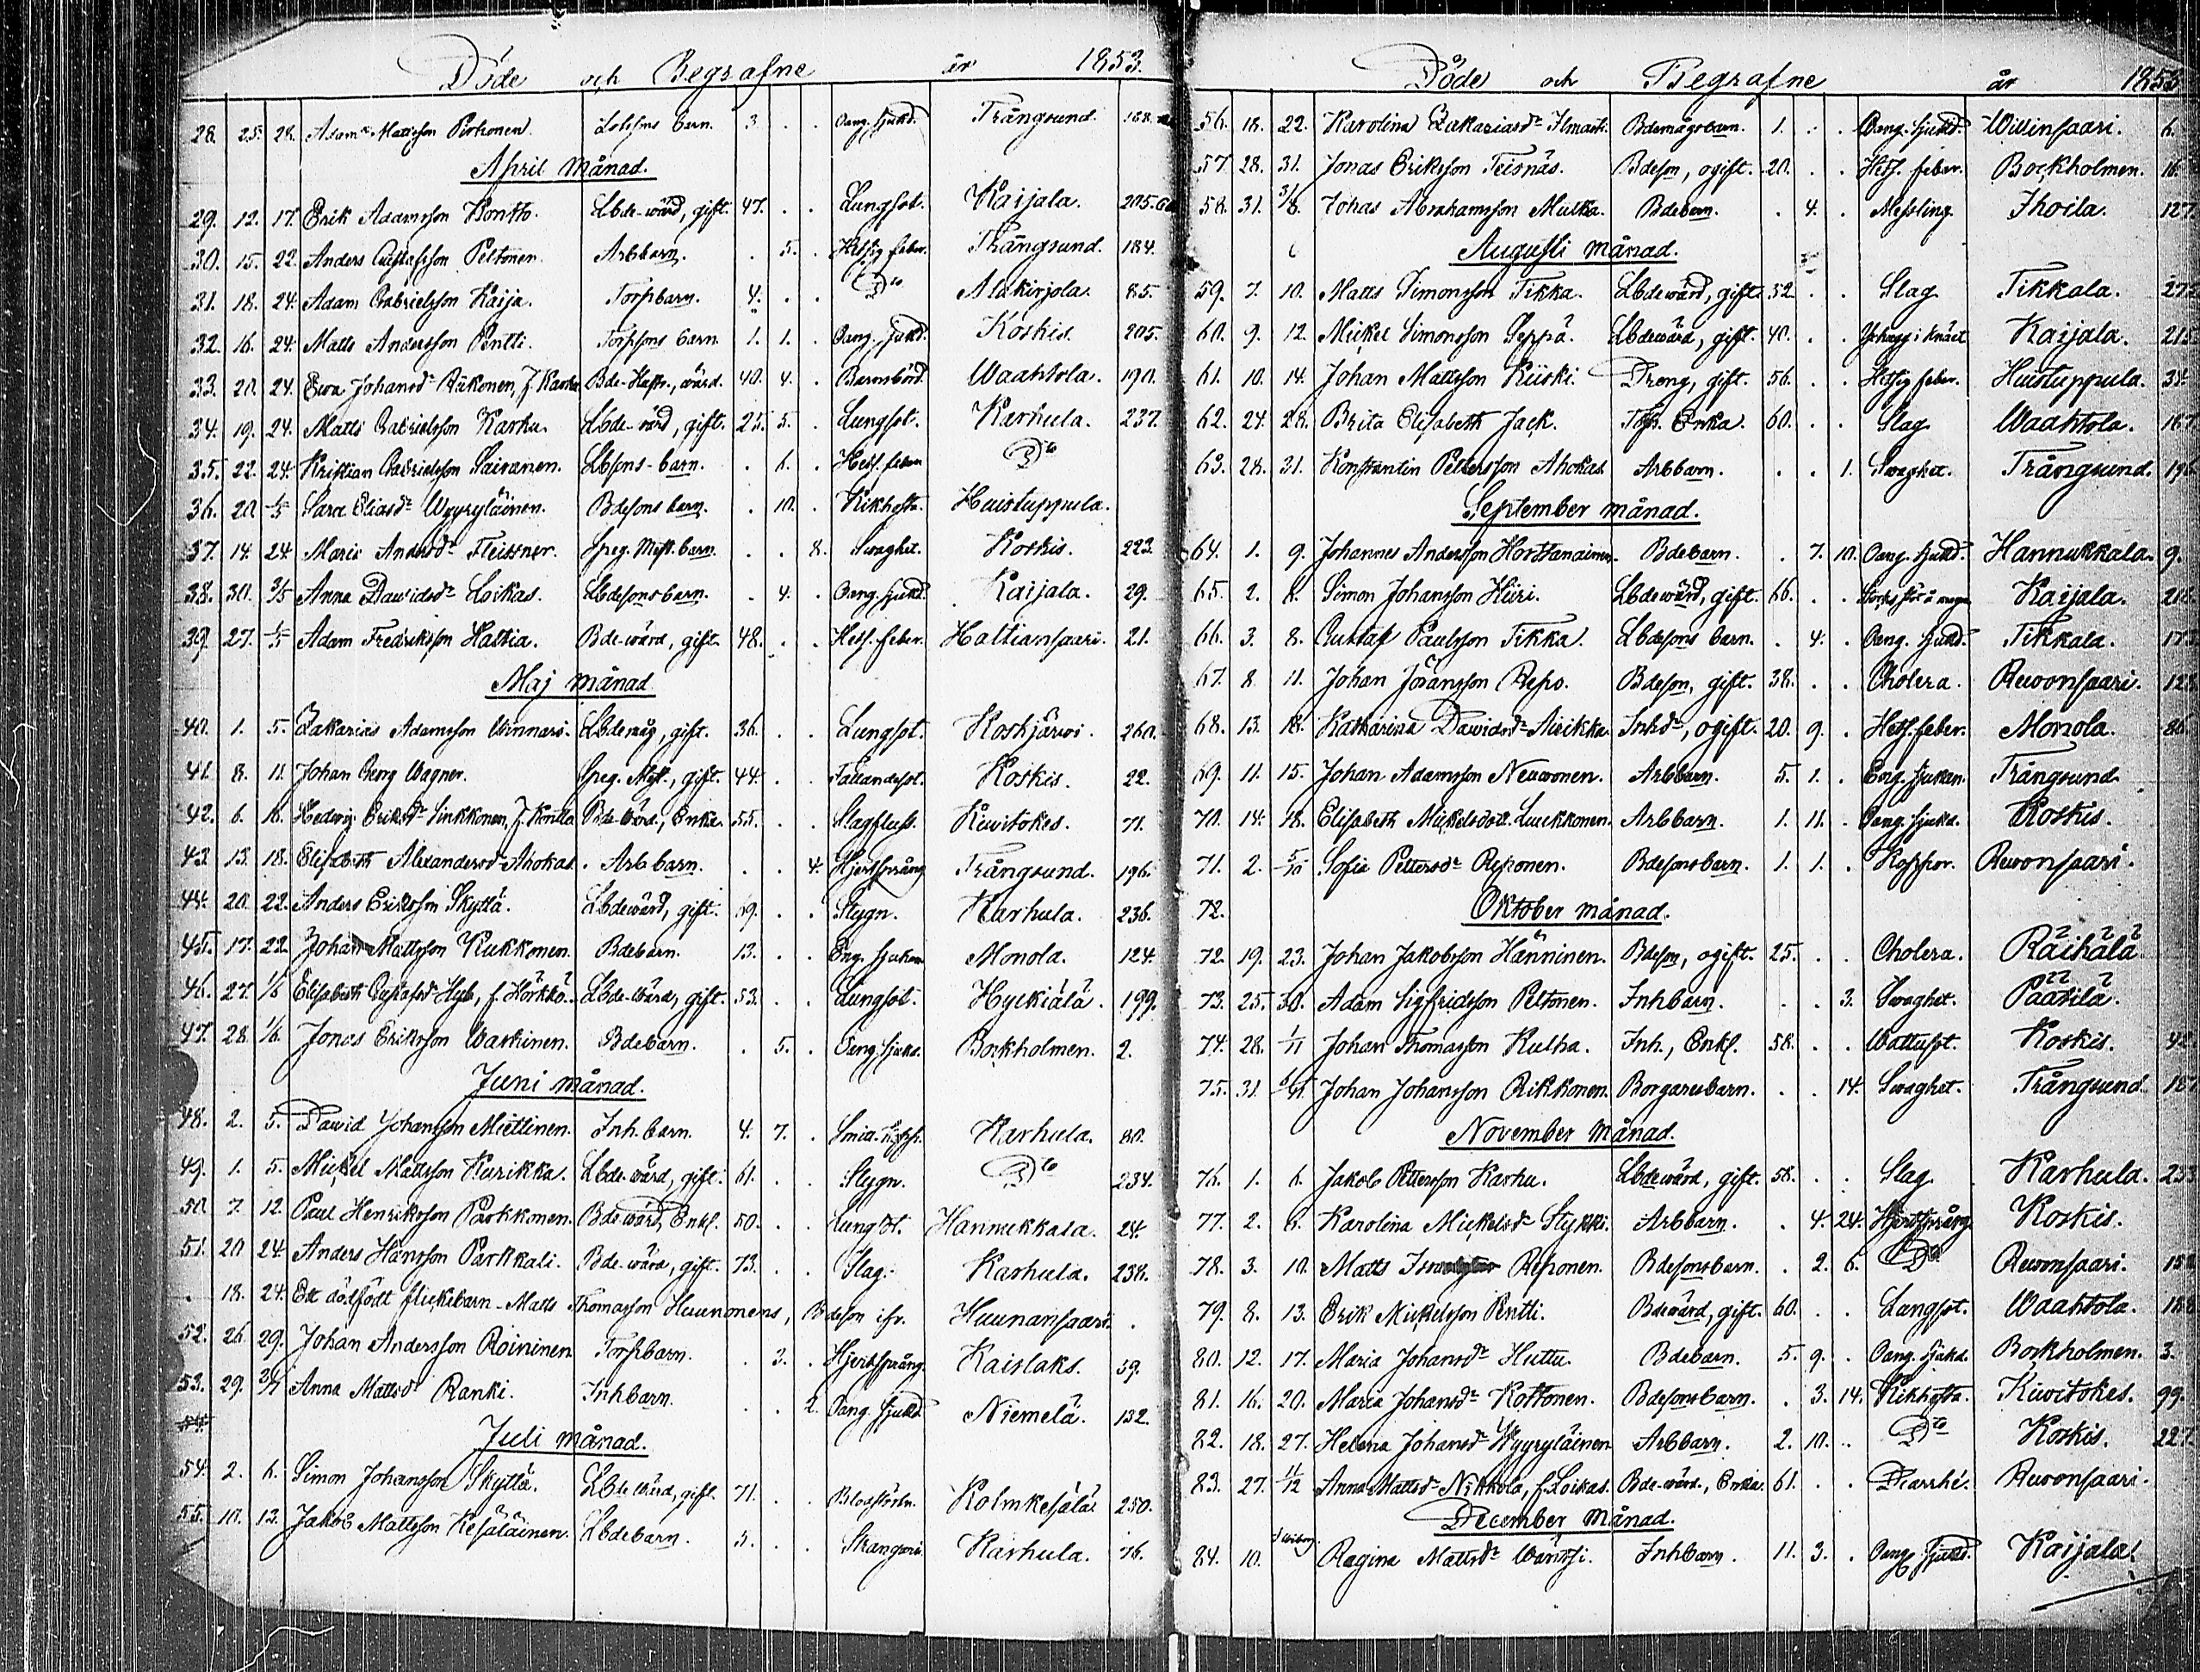 Döde och Begrafne år 1853.
28. 25. 28. Adam Mattsson Pirhonen. barn. 3. . . Oang. sjukd. Trångsund. 188.
April månad.
29. 12. 17. Erik Adamsson Kontto. Lbde-wärd, gift. 47. . . Lungsot. Kaijala. 205.
30. 15. 22. Anders Gustafsson Peltonen. Arbbarn. . 5. . Hetsig feber. Trångsund. 184.
31. 18. 24. Adam Gabrielsson Kaija. Torpbarn. 4. . . Dto Alakirjola. 85.
32. 16. 24. Matts Andersson Pentti. Torpsons barn. 1. 1. . Oang. sjukd. Koskis. 205.
33. 20. 24. Ewa Johansdr Räikonen, f. Karhu Bde-Hustr., wärd. 40. 4. . Barnsbörd. Waahtola. 190.
34. 19. 24. Matts Gabrielsson Karhu. Lbde-wärd, gift. 25. 5. . Lungsot. Karhula. 237.
35. 22. 24. Kristian Gabrielsson Sairanen. Lbsons-barn. . 6. . Hets. feber Dto
36. 20. 1/5 Sara Eliasdr Wyyryläinen. Bdesons barn. . 10. . Kikhosta. Huistuppula.
37. 14. 24. Maria Andersdr Fleissner. Speg. Mäst. barn. . . 8. Swaghet. Koskis. 223.
38. 30. 3/5 Anna Dawidsdr Loikas. Lbdesonsbarn. . 4. . Oang. sjukd. Kaijala. 29.
39. 27. 1/5 Adam Fredriksson Hattia. Bde-wärd, gift. 48. . . Hets. feber. Hattiansaari. 21.
Maj månad
40. 1. 5. Zakarias Adamsson Winnari. Lbdemåg, gift. 36. . . Lungsot. Koskjärwi. 260.
41. 8. 11. Johan Georg Wagner. Speg. Mäst., gift. 44. . . Fallandesot. Koskis. 22.
42. 6. 16. Hedwig Eriksdr Sinkkonen, f. Bde-wärd., Enka. 55. . . Slagfluss. Kuwitokes. 71.
43. 13. 18. Elisabeth Alexandersdr Ahokas. Arbbarn. . . 4. Hjertsprång Trångsund. 196.
44. 20. 22. Anders Eriksson Skyttä. Lbdewärd, gift. 69. . . Stygn. Karhula. 236.
45. 17. 22. Johan Mattsson Kukkonen. Bdebarn. 13. . . Eng. sjukan Monola. 124.
46. 27. 1/6 Elisabeth Gustafsdr f. Hörkkö. Lbde-wärd, gift. 53. . . Lungsot. Hyckiälä. 199.
47. 28. 1/6. Jonas Eriksson Waskinen. Bdebarn. . 5. . Oang. sjukd. Bockholmen. 2.
Juni månad.
48. 2. 5. Dawid Johansson Miettinen. Inh. barn. 4. 7. . Karhula. 80.
49. 1. 5. Mickel Mattsson Kurikka. Lbde-wärd, gift. 61. . . Stygn. Dto 234.
50. 7. 12. Paul Henriksson Parkkonen. Bdewärd, Enkl. 50. . . Lungsot. Hannukkala. 24.
51. 20. 24. Anders Hansson Parkkali. Bde-wärd, gift. 73. . . Slag. Karhula. 238.
. 18. 24. Ett dödfödt flickebarn - Matts Thomasson Huunonens, Bdeson ifr. Huunansaari.
52. 26. 29. Johan Andersson Roininen Torpbarn. . 3. . Hjertsprång. Kaislaks. 39.
53. 29. 3/7 Anna Mattsdr Ranki. Inhbarn. . . 2. Oang. sjukd Niemelä. 132.
Juli månad.
54. 2. 6. Simon Johansson Skyttä. Lbde wärd, gift. 71. . . Blodstörtn. Kolmkesälä. 250.
55. 10. 13. Jakob Mattsson Kesäläinen. Lbdebarn. 3. . . Karhula. 76.
Döde och Begrafne år 1853
56. 18. 22. Karolina Zakariasdr Bdemågsbarn. 1. . . Oang. sjukd. Willinsaari. 6.
57. 28. 31. Jonas Eriksson Teisnäs. Bdeson, ogift. 20. . . Hets. feber. Bockholmen. 16.
58. 31. 3/8. Johas Abrahamsson Mulka. Bdebarn. . 4. . Messling. Ihoila. 127.
Augusti månad.
59. 7. 10. Matts Simonsson Tikka. Lbdewärd, gift. 52. . . Slag Tikkala.
60. 9. 12. Mickel Simonsson Seppä. Lbdewärd, gift. 40. . . Kaijala. 215
61. 10. 14. Johan Mattsson Kiiski. Dreng, gift. 56. . . Hetsig feber. Huistuppula. 34.
62. 24. 28. Brita Elisabeth Jack. Enka. 60. . . Slag Waahtola. 167
63. 28. 31. Konstantin Pettersson Ahokas. Arbbarn. . . 1. Swaghet. Trångsund. 196
September månad.
64. 1. 9. Johannes Andersson Horttanainen. Bdebarn. . 7. 10. Oang. sjukd. Hannukkala. 9.
65. 2. 6. Simon Johansson Hiiri. Lbdewärd, gift. 66. . . Kaijala.
66. 3. 8. Gustaf Paulsson Tikka. Lbdesons barn. . 4. . Oang. sjukd. Tikkala.
67. 8. 11. Johan Jöransson Repo. Bdeson, gift. 38. . . Cholera. Rewonsaari. 128
68. 13. 18. Katharina Dawidsdr Airikka. Inhdr, ogift. 20. 9. . Hets. feber. Monola. 86
69. 11. 15. Johan Adamsson Neuwonen. Arbbarn. 5. 1. . Eng. sjukan. Trångsund
70. 14. 18. Elisabeth Mickelsdotr Luukkonen. Arbbarn. 1. 11. . Oang. sjukd. Koskis.
71. 2. 5/10 Sofia Pettersdr Reponen. Bdesonsbarn. 1. 1. . Koppor. Rewonsaari.
72. Oktober månad.
72. 19. 23. Johan Jakobsson Hänninen. Bdeson, ogift. 25. . . Cholera. Räihälä
73. 25. 30. Adam Sigfridsson Peltonen. Inhbarn. . . 3. Swaghet. Päätilä.
74. 28. 1/11 Johan Thomasson Kulha. Inh., Enkl. 58. . . Wattusot. Koskis. 42
75. 31. Johan Johansson Rikkonen. Borgarebarn. . . 14. Swaghet. Trångsund. 187
November månad.
76. 1. 6. Jakob Pettersson Karhu. Lbdewärd, gift. 58. . . Slag. Karhula. 233
77. 2. 6. Karolina Mickelsdr Stykki. Arbbarn. . 4. 24. Hjertsprång Koskis.
78. 3. 10. Matts Reponen. Bdesonsbarn. . 2. 6. Dto Rewonsaari.
79. 8. 13. Erik Mickelsson Pentti. Bdewärd, gift. 60. . . Lungsot. Waahtola. 188
80. 12. 17. Maria Johansdr Huttu. Bdebarn. 5. 9. . Oang. sjukd. Bockholmen. 3.
81. 16. 20. Maria Johansdr Kottonen. Bdesonsbarn. . 3. 14. Kikhosta. Kiwitokes. 99.
82. 18. 27. Helena Johansdr Wyyryläinen Arbbarn. 2. 10. . Dto Koskis. 227.
83. 27. 1/12 Anna Mattsdr Nikkola, f. Loikas. Bde-wärd., Enka. 61. . . Diarrhé. Rewonsaari.
December månad.
84. 10. Regina Mattsdr Inhbarn. 11. 3. . Oang. sjukd. Kaijala.